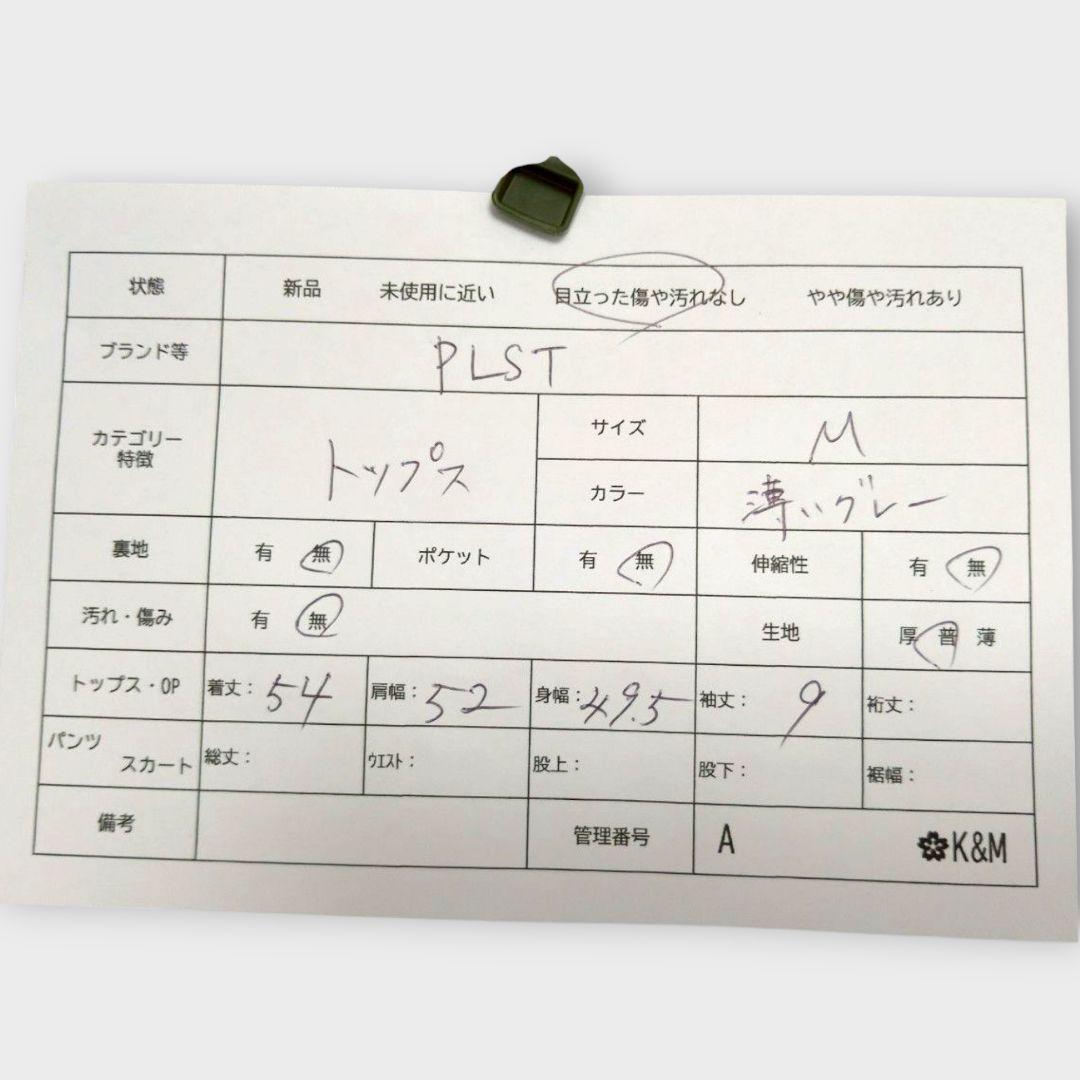 状態 新品 未使用に近い 目立った傷や汚れなし やや傷や汚れあり
ブランド等 PLST
カテゴリー
特徴
トップス
サイズ M
カラー 薄いグレー
裏地 有 無 ポケット 有 無 伸縮性 有 無
汚れ・傷み 有 無 生地 厚 普 薄
トップス・OP 着丈：54 肩幅：52 身幅：49.5 袖丈：9 裄丈：
パンツ
スカート 総丈： ウエスト： 股上： 股下： 裾幅：
備考 管理番号 A K&M